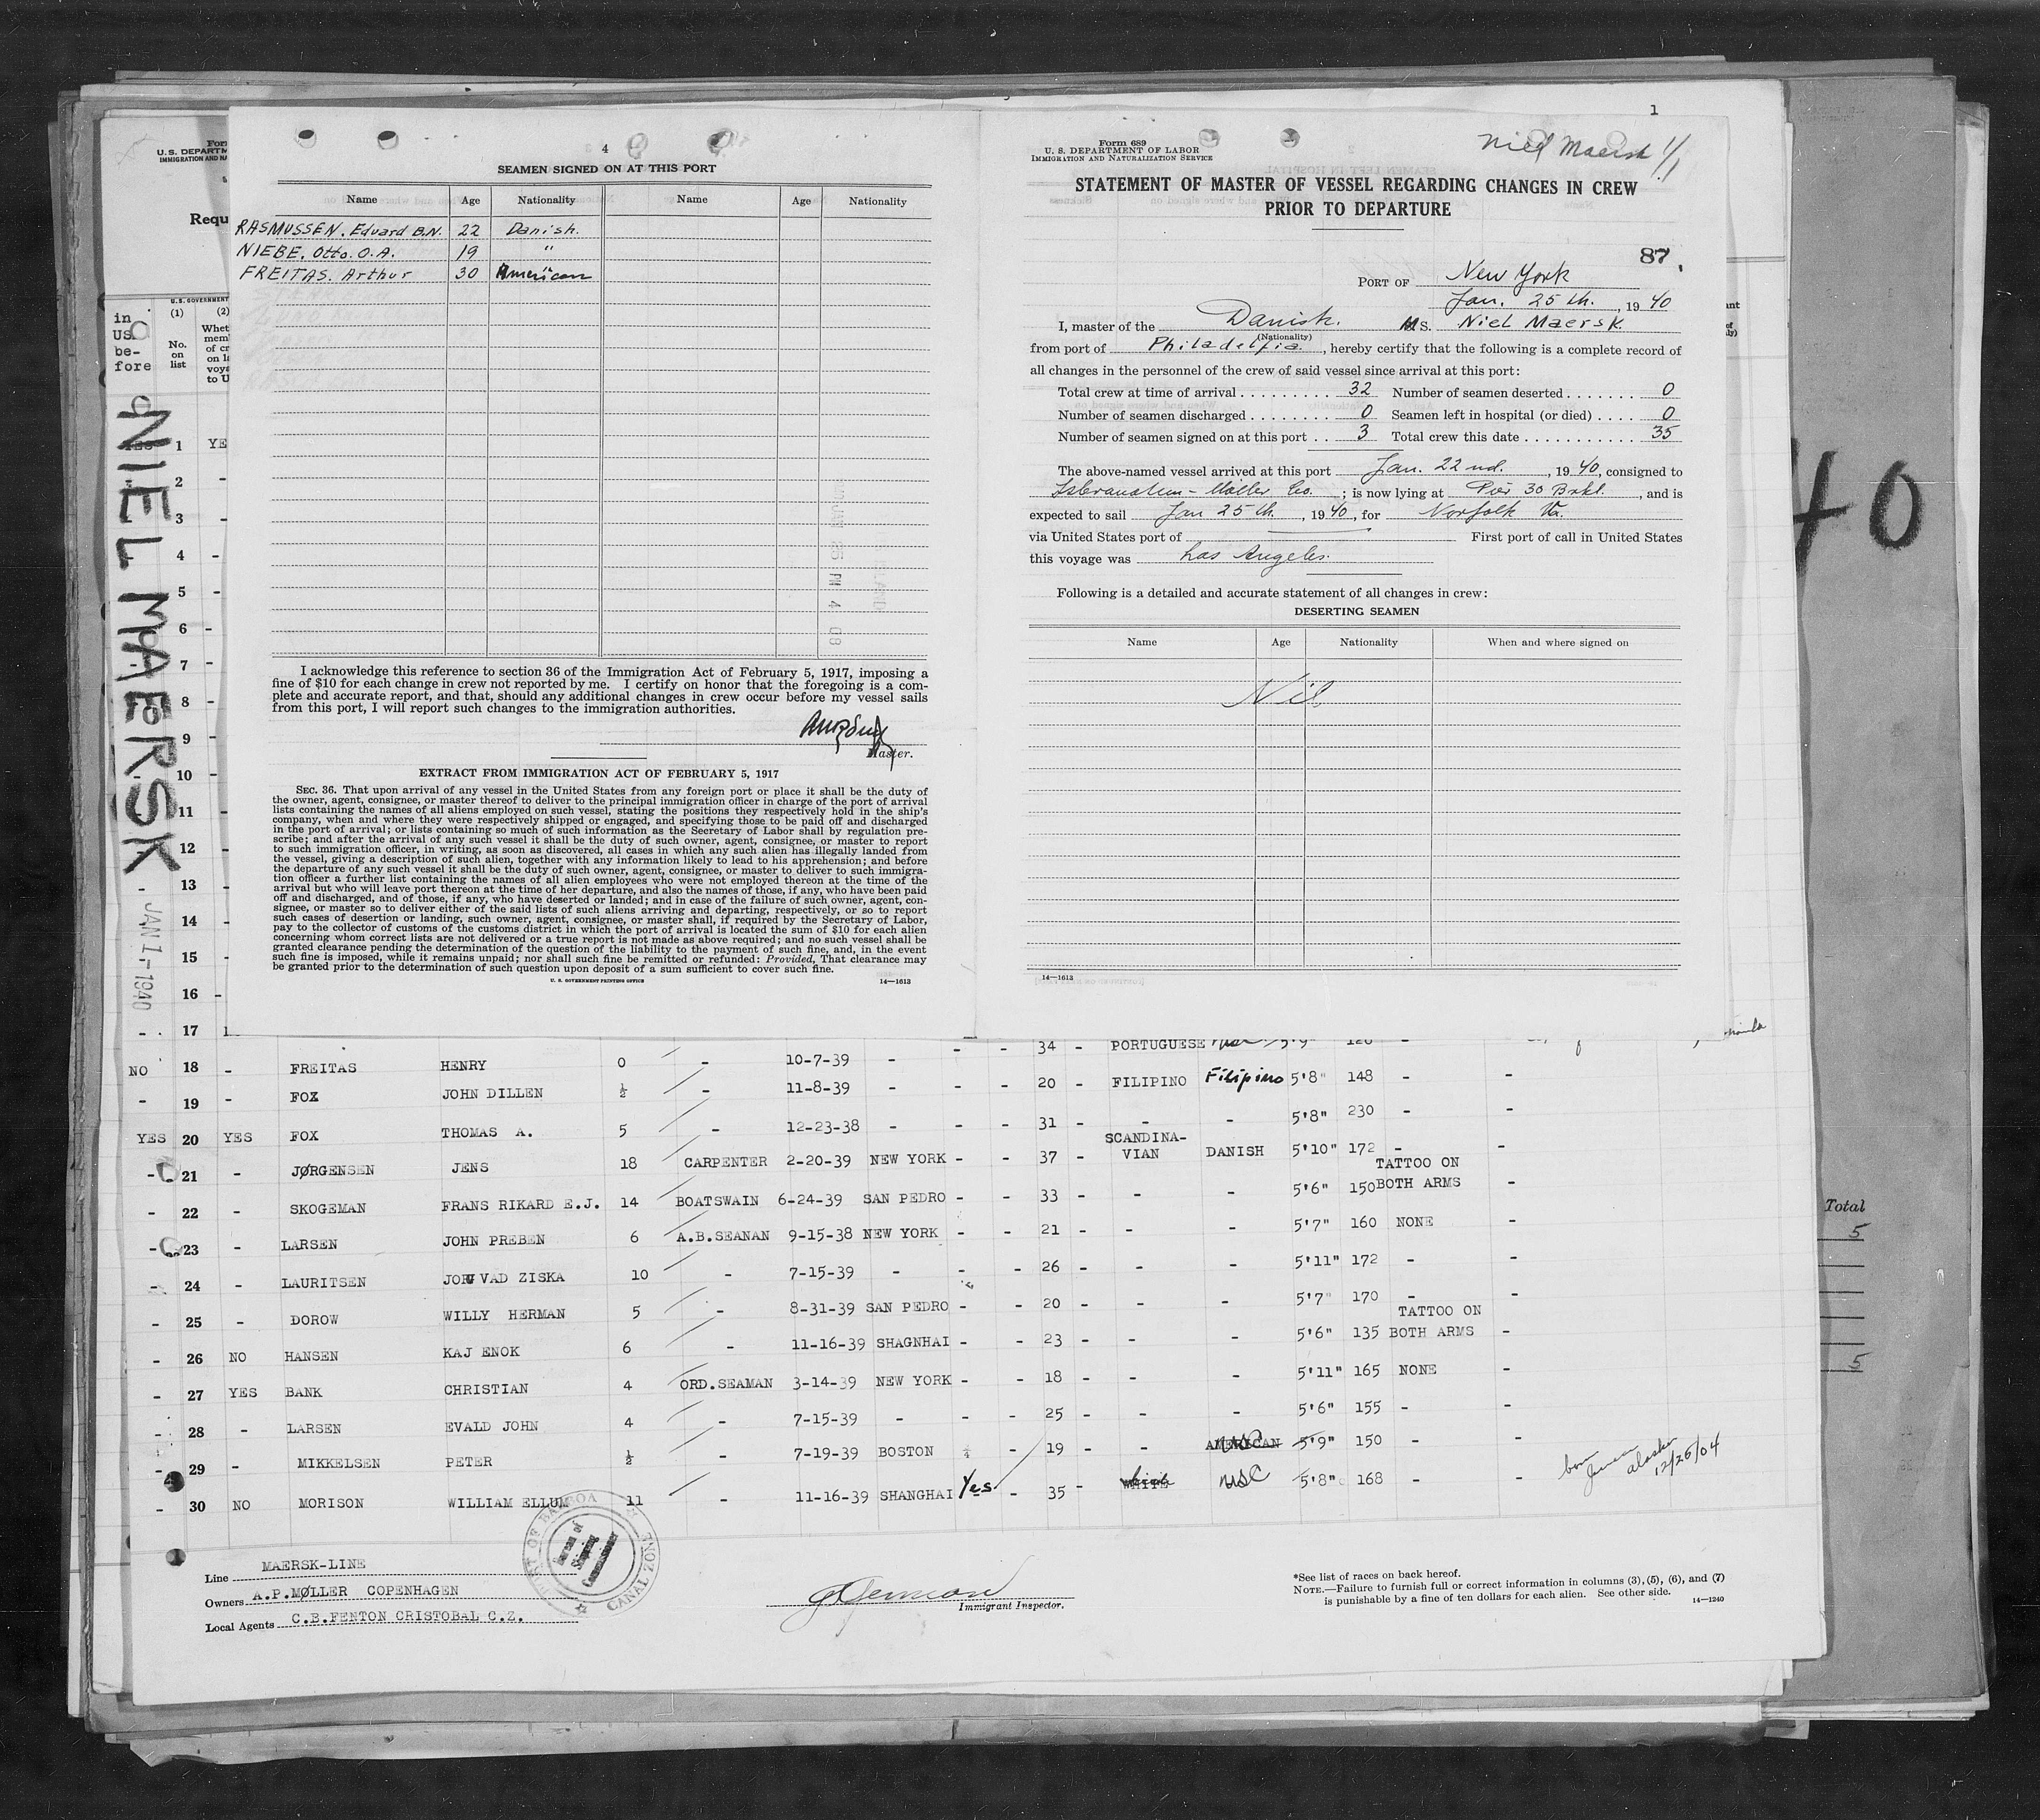 4
SEAMEN SIGNED ON AT THIS PORT
Name Age Nationality Name Age Nationality
RASMUSSEN. Edvard B.N. 22 Danish.
NIEBE. Otto. O.A. 19 "
FREITAS. Arthur 30 American
I acknowledge this reference to section 36 of the Immigration Act of February 5, 1917, imposing a
fine of $10 for each change in crew not reported by me. I certify on honor that the foregoing is a com-
plete and accurate report, and that, should any additional changes in crew occur before my vessel sails
from this port, I will report such changes to the immigration authorities.
Master.
EXTRACT FROM IMMIGRATION ACT OF FEBRUARY 5, 1917
SEC. 36. That upon arrival of any vessel in the United States from any foreign port or place it shall be the duty of
the owner, agent, consignee, or master thereof to deliver to the principal immigration officer in charge of the port of arrival
lists containing the names of all aliens employed on such vessel, stating the positions they respectively hold in the ship's
company, when and where they were respectively shipped or engaged, and specifying those to be paid off and discharged
in the port of arrival; or lists containing so much of such information as the Secretary of Labor shall by regulation pre-
scribe; and after the arrival of any such vessel it shall be the duty of such owner, agent, consignee, or master to report
to such immigration officer, in writing, as soon as discovered, all cases in which any such alien has illegally landed from
the vessel, giving a description of such alien, together with any information likely to lead to his apprehension; and before
the departure of any such vessel it shall be the duty of such owner, agent, consignee, or master to deliver to such immigra-
tion officer a further list containing the names of all alien employees who were not employed thereon at the time of the
arrival but who will leave port thereon at the time of her departure, and also the names of those, if any, who have been paid
off and discharged, and of those, if any, who have deserted or landed; and in case of the failure of such owner, agent, con-
signee, or master so to deliver either of the said lists of such aliens arriving and departing, respectively, or so to report
such cases of desertion or landing, such owner, agent, consignee, or master shall, if required by the Secretary of Labor,
pay to the collector of customs of the customs district in which the port of arrival is located the sum of $10 for each alien
concerning whom correct lists are not delivered or a true report is not made as above required; and no such vessel shall be
granted clearance pending the determination of the question of the liability to the payment of such fine, and, in the event
such fine is imposed, while it remains unpaid; nor shall such fine be remitted or refunded: Provided, That clearance may
be granted prior to the determination of such question upon deposit of a sum sufficient to cover such fine.
U. S. GOVERNMENT PRINTING OFFICE 14—1613
1
Form 689
U. S. DEPARTMENT OF LABOR
IMMIGRATION AND NATURALIZATION SERVICE
Niel Maersk 1/1
STATEMENT OF MASTER OF VESSEL REGARDING CHANGES IN CREW
PRIOR TO DEPARTURE
87
PORT OF New York
Jan. 25 th. , 1940
I, master of the Danish. MS. Niel Maersk.
(Nationality)
from port of Philadelfia , hereby certify that the following is a complete record of
all changes in the personnel of the crew of said vessel since arrival at this port:
Total crew at time of arrival 32 Number of seamen deserted 0
Number of seamen discharged 0 Seamen left in hospital (or died) 0
Number of seamen signed on at this port 3 Total crew this date 35
The above-named vessel arrived at this port Jan. 22 nd. , 1940, consigned to
Isbrandtsen - Møller Co. ; is now lying at Pier 30 Brkl. , and is
expected to sail Jan 25 th. , 1940, for Norfolk Va.
via United States port of First port of call in United States
this voyage was Los Angeles.
Following is a detailed and accurate statement of all changes in crew:
DESERTING SEAMEN
Name Age Nationality When and where signed on
Nil
14—1613
U. S. DEPARTM
IMMIGRATION AND NA
Requ
U.S. GOVERNMENT
in
US
be-
fore
(1) (2)
No.
on
list
Whet
mem
of cr
on la
voya
to U
NIEL MAERSK
JAN 1 - 1940
1 YE
2 -
3 -
4 -
5 -
6 -
7 -
8 -
9 -
10 -
11 -
12 -
- 13 -
14 -
15 -
16 -
- 17
40
Total
5
5
34 - PORTUGUESE 5'9" 126 -
NO 18 - FREITAS HENRY 0 - 10-7-39 - - -
- 19 - FOX JOHN DILLEN ½ - 11-8-39 - - - 20 - FILIPINO Filipino 5'8" 148 - -
YES 20 YES FOX THOMAS A. 5 - 12-23-38 - - - 31 - - - 5'8" 230 - -
- 21 - JØRGENSEN JENS 18 CARPENTER 2-20-39 NEW YORK - - 37 - SCANDINA-VIAN DANISH 5'10" 172 - -
- 22 - SKOGEMAN FRANS RIKARD E.J. 14 BOATSWAIN 6-24-39 SAN PEDRO - - 33 - - - 5'6" 150 TATTOO ON BOTH ARMS -
- 23 - LARSEN JOHN PREBEN 6 A.B.SEANAN 9-15-38 NEW YORK - - 21 - - - 5'7" 160 NONE -
- 24 - LAURITSEN JORV VAD ZISKA 10 - 7-15-39 - - - 26 - - - 5'11" 172 - -
- 25 - DOROW WILLY HERMAN 5 - 8-31-39 SAN PEDRO - - 20 - - - 5'7" 170 - -
- 26 NO HANSEN KAJ ENOK 6 - 11-16-39 SHAGNHAI - - 23 - - - 5'6" 135 TATTOO ON BOTH ARMS -
- 27 YES BANK CHRISTIAN 4 ORD.SEAMAN 3-14-39 NEW YORK - - 18 - - - 5'11" 165 NONE -
- 28 - LARSEN EVALD JOHN 4 - 7-15-39 - - - 25 - - - 5'6" 155 - -
- 29 - MIKKELSEN PETER ½ - 7-19-39 BOSTON - 19 - - AMERICAN USC 5'9" 150 - -
- 30 NO MORISON WILLIAM ELLUM 11 - 11-16-39 SHANGHAI Yes - 35 - WHITE USC 5'8" 168 - - born Juneau Alaska 12/25/04
Line MAERSK-LINE
Owners A.P.MØLLER COPENHAGEN
Local Agents C.B.FENTON CRISTOBAL C.Z.
PORT OF BALBOA CANAL ZONE
Bureau of
Shipping
Commissioner
Immigrant Inspector.
*See list of races on back hereof.
NOTE.—Failure to furnish full or correct information in columns (3), (5), (6), and (7)
is punishable by a fine of ten dollars for each alien. See other side.
14—1240